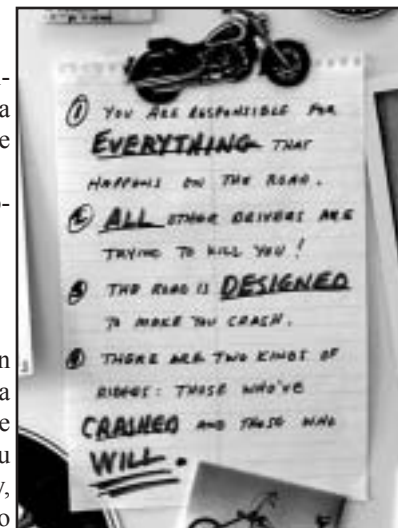 ① YOU ARE RESPONSIBLE FOR
EVERYTHING THAT
HAPPENS ON THE ROAD.
② ALL OTHER DRIVERS ARE
TRYING TO KILL YOU!
③ THE ROAD IS DESIGNED
TO MAKE YOU CRASH.
④ THERE ARE TWO KINDS OF
RIDERS: THOSE WHO'VE
CRASHED AND THOSE WHO
WILL.